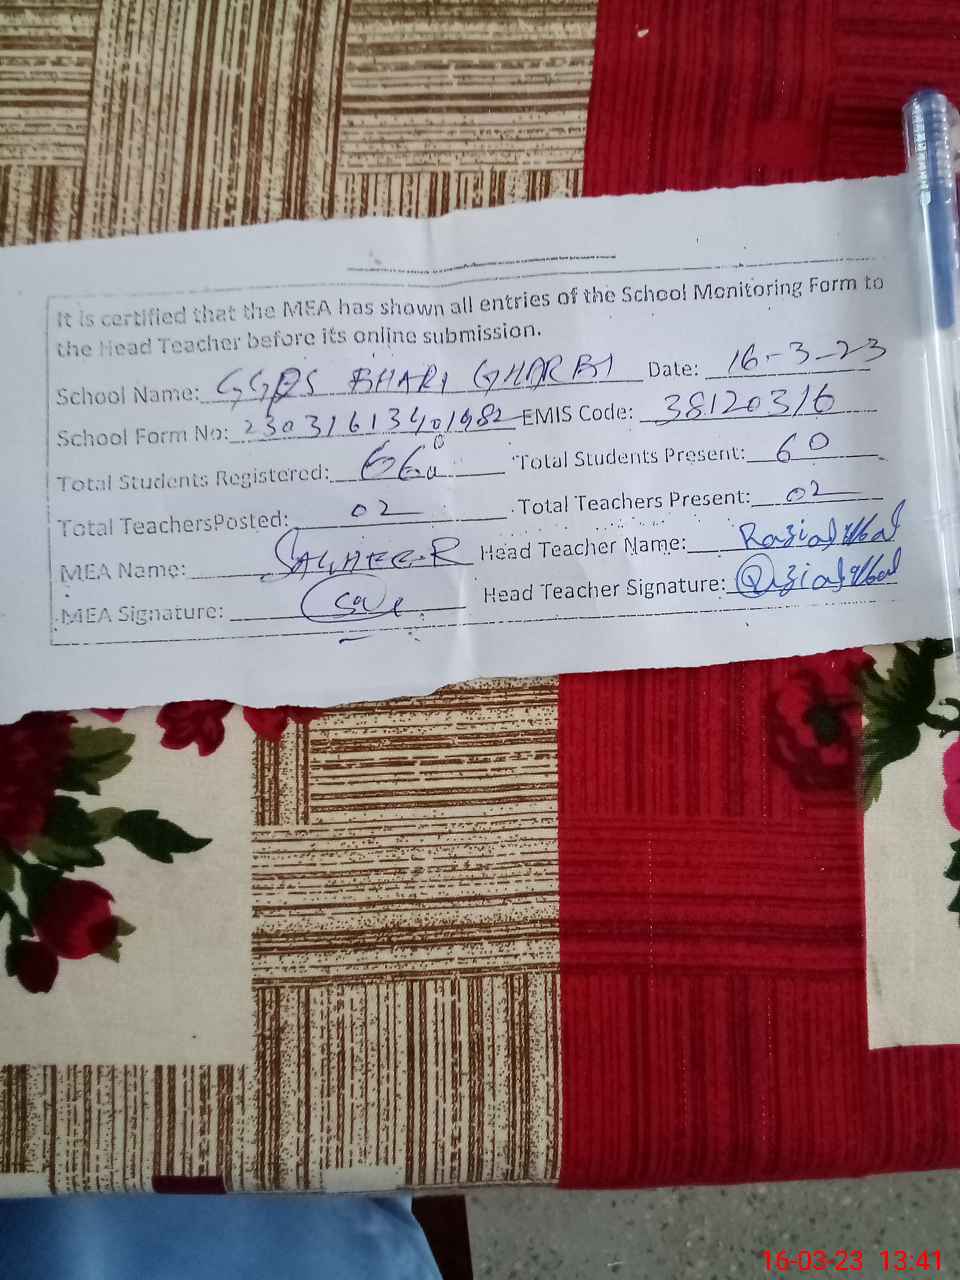 It is certified that the MEA has shown all entries of the School Monitoring Form to
the Head Teacher before its online submission.
School Name: GGPS BHARI GHARBI Date: 16-3-23
School Form No: EMIS Code: 38120316
Total Students Registered: Total Students Present: 60
Total TeachersPosted: 02 Total Teachers Present: 02
MEA Name: Head Teacher Name: Razia Iqbal
MEA Signature: Head Teacher Signature: Razia Iqbal
16-03-23 13:41